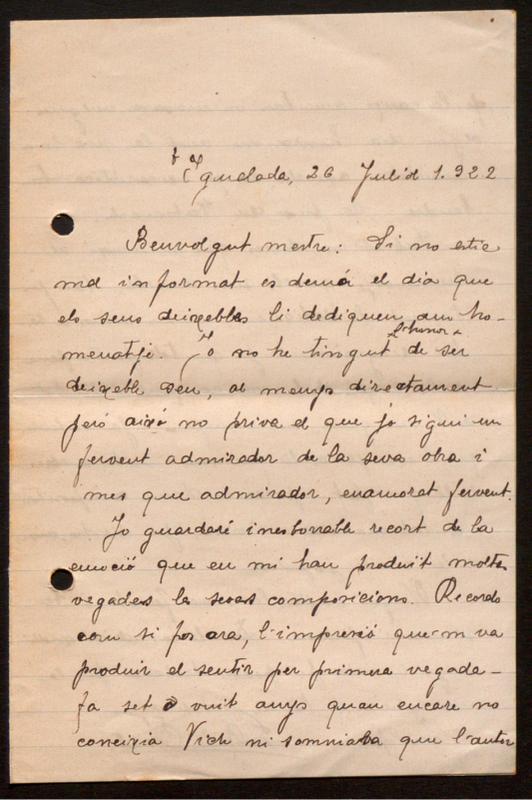 Igualada, 26 Juliol 1.922
Benvolgut mestre: Si no estic
mal informat es demá el dia que
els seus deixebles li dediquen un ho-
menatje. Jo no he tingut l'honor
de ser
deixeble seu, al menys directament
peró aixó no priva el que jo sigui un
fervent admirador de la seva obra i
mes que admirador, enamorat fervent.
Jo guardaré inesborrable recort de la
emoció que en mi han produït moltes
vegades les sevas composicions. Recordo
com si fos ara, l'impresió que-m va
produir el sentir per primera vegada-
fa set o vuit anys quan encare no
coneixia Vich ni somniaba que l'autor